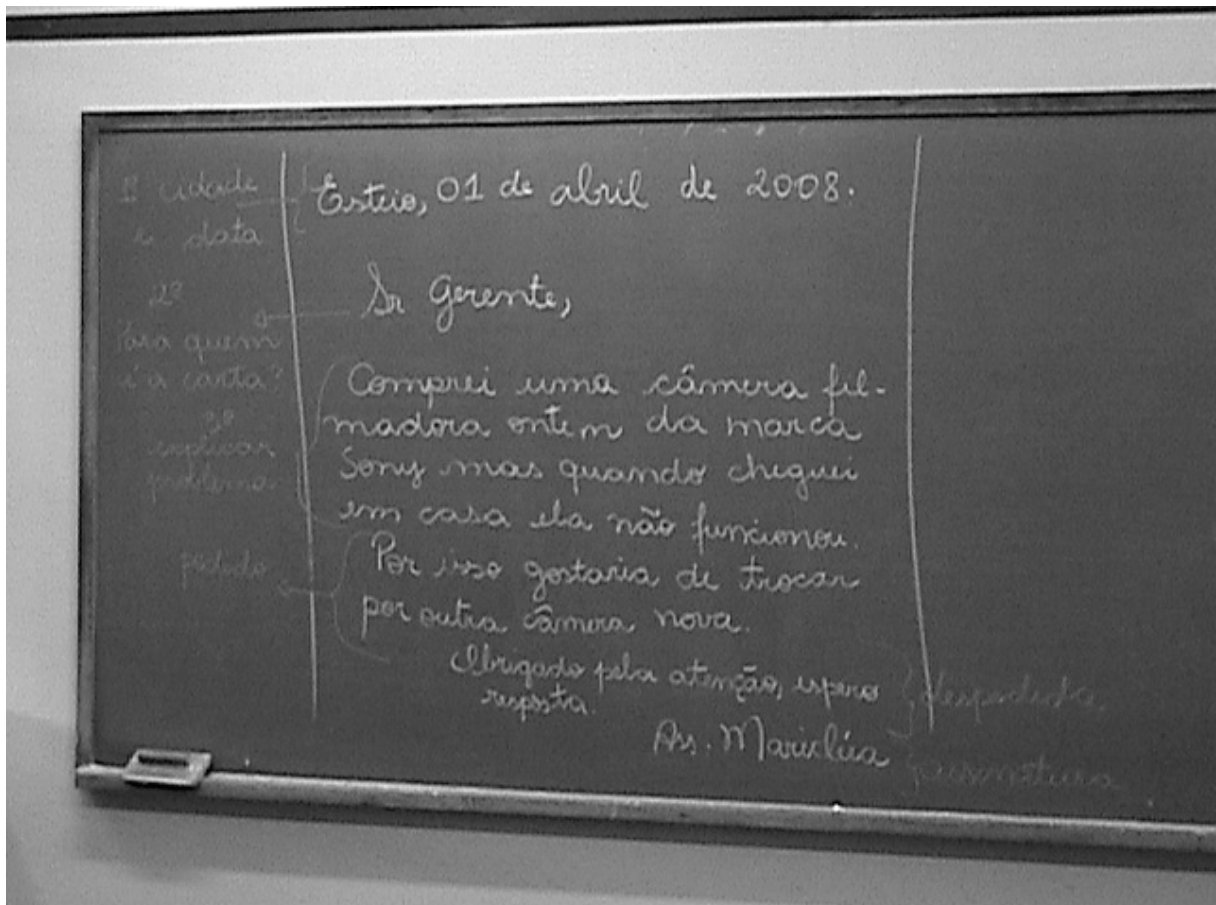 1º cidade
e data
2º
Para quem
é a carta?
3º
explicar
problema
pedido
Esteio, 01 de abril de 2008.
Sr Gerente,
Comprei uma câmera fil-
madora ontem da marca
Sony mas quando cheguei
em casa ela não funcionou.
Por isso gostaria de trocar
por outra câmera nova.
Obrigado pela atenção, espero
resposta.
Ass. Mariclúa
despedida
assinatura